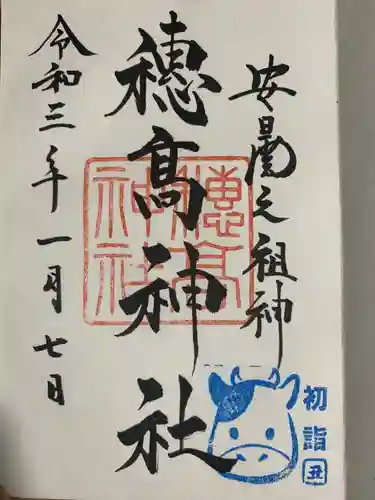 安曇之祖神
穂髙神社
令和三年一月七日
穂高神社
初詣
丑